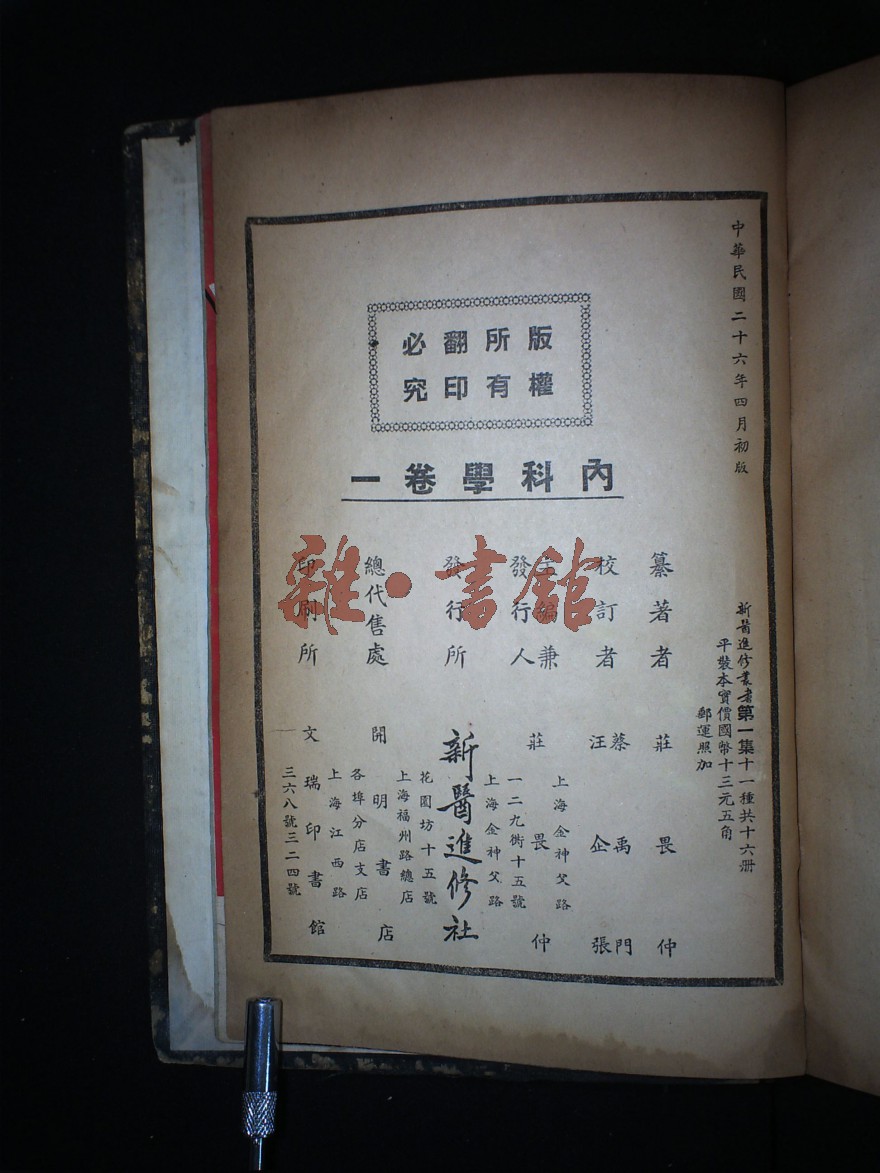 中華民國二十六年四月初版
版權
所有
翻印
必究
內科學卷一
新醫進修叢書第一集十一種共十六册
平裝本實價國幣十三元五角
郵運照加
纂著者 莊畏仲
校訂者 蔡禹門
汪企張
主編兼
發行人 莊畏仲
上海金神父路
一二九衖十五號
發行所 新醫進修社
上海金神父路
花園坊十五號
總代售處 開明書店
上海福州路總店
各埠分店支店
印刷所 文瑞印書館
上海江西路
三六八號三二四號
雜·書館